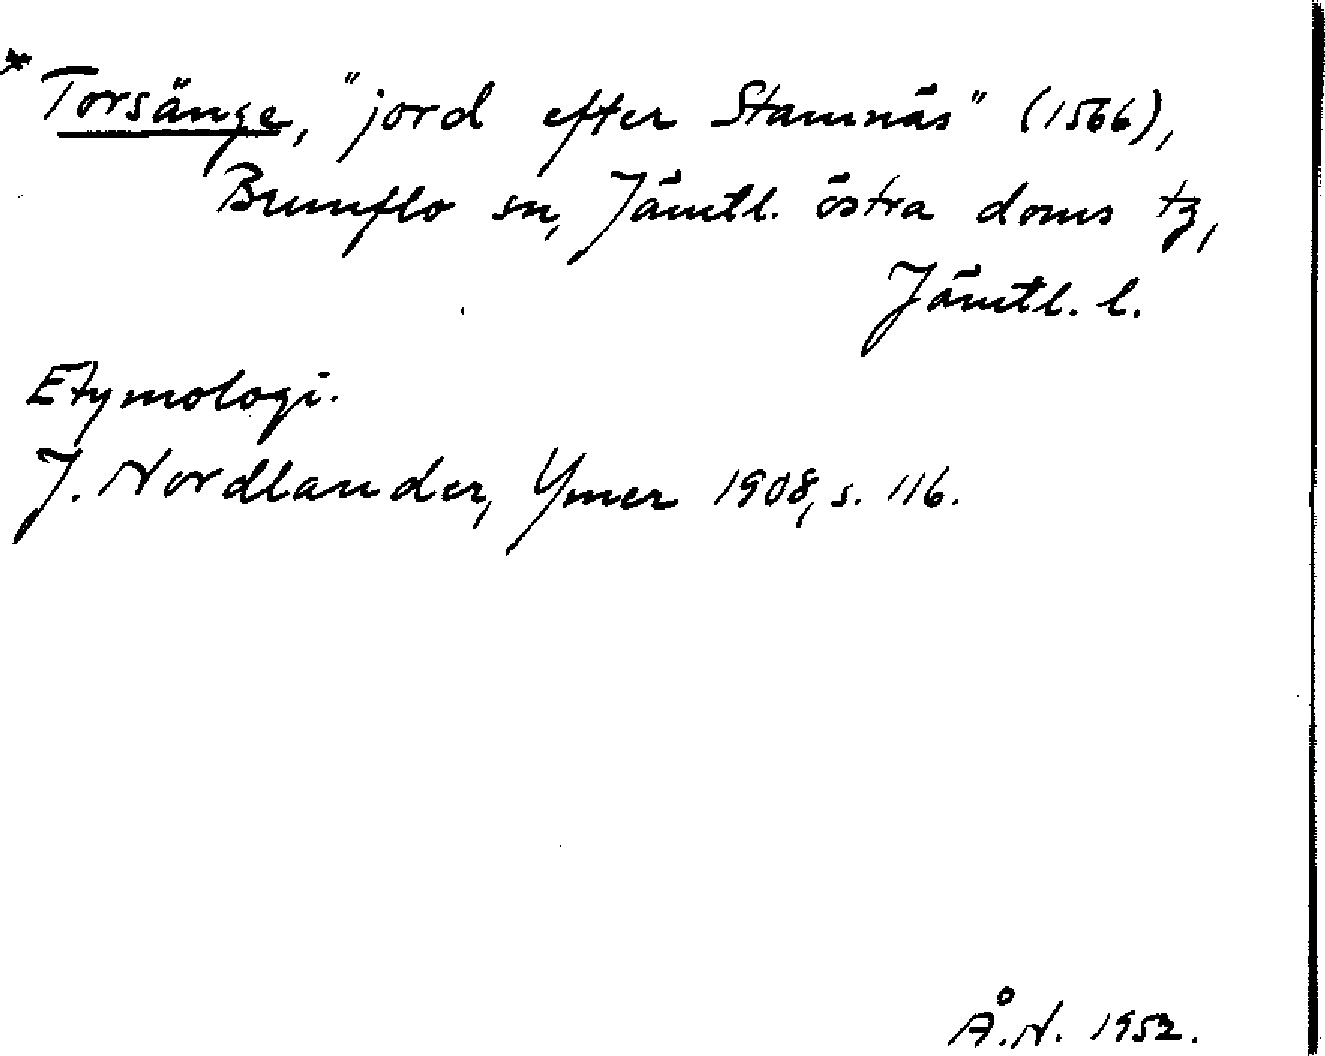 * Torsänge, "jord efter Stamnäs" (1566),
Brunflo sn, Jämtl. östra doms tg,
Jämtl. l.
Etymologi.
J. Nordlander, Ymer 1908, s. 116.
Å.N. 1952.